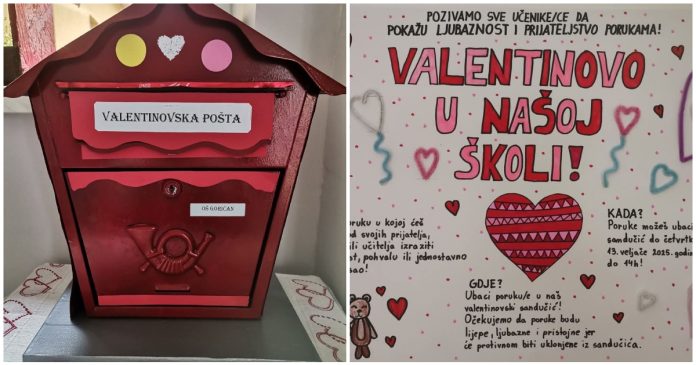 VALENTINOVSKA POŠTA
OŠ GORIČAN
POZIVAMO SVE UČENIKE/CE DA
POKAŽU LJUBAZNOST I PRIJATELJSTVO PORUKAMA!
VALENTINOVO
U NAŠOJ
ŠKOLI!
poruku u kojoj ćeš
od svojih prijatelja,
ili učitelja izraziti
st, pohvalu ili jednostavno
KADA?
Poruke možeš ubaci
sandučić do četvrtk
13. veljače 2025. godin
do 14h!
GDJE?
Ubaci poruku/e u naš
valentinovski sandučić!
Očekujemo da poruke budu
lijepe, ljubazne i pristojne jer
će protivnom biti uklonjene iz sandučića.